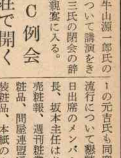 牛山源一郎氏の
について講演をき
三氏の閉会の辞
親宴に入る。
C例会
社で開く
1の元吉氏も同席
流行について懇
日出席のメンバ
長、坂本主任は
売粧報、週刊粧
品、問屋連盟
装粧品、本紙の